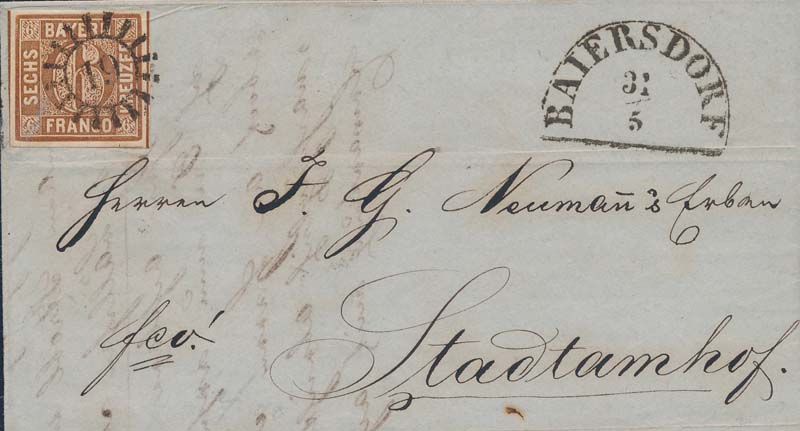 BAYERN
SECHS
KREUZER
FRANCO
6
19
BAIERSDORF
31
5
Herren J. G. Neumañ's Erben
fco!
Stadtamhof.